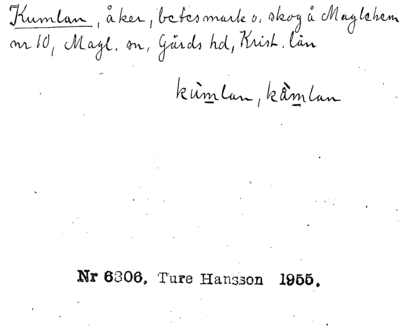 Kumlan, åker, betesmark o. skog å Maglehem
nr 10, Magl. sn, Gärds hd, Krist. län
kùmlan, kåmlan
Nr 6306. Ture Hansson 1955.